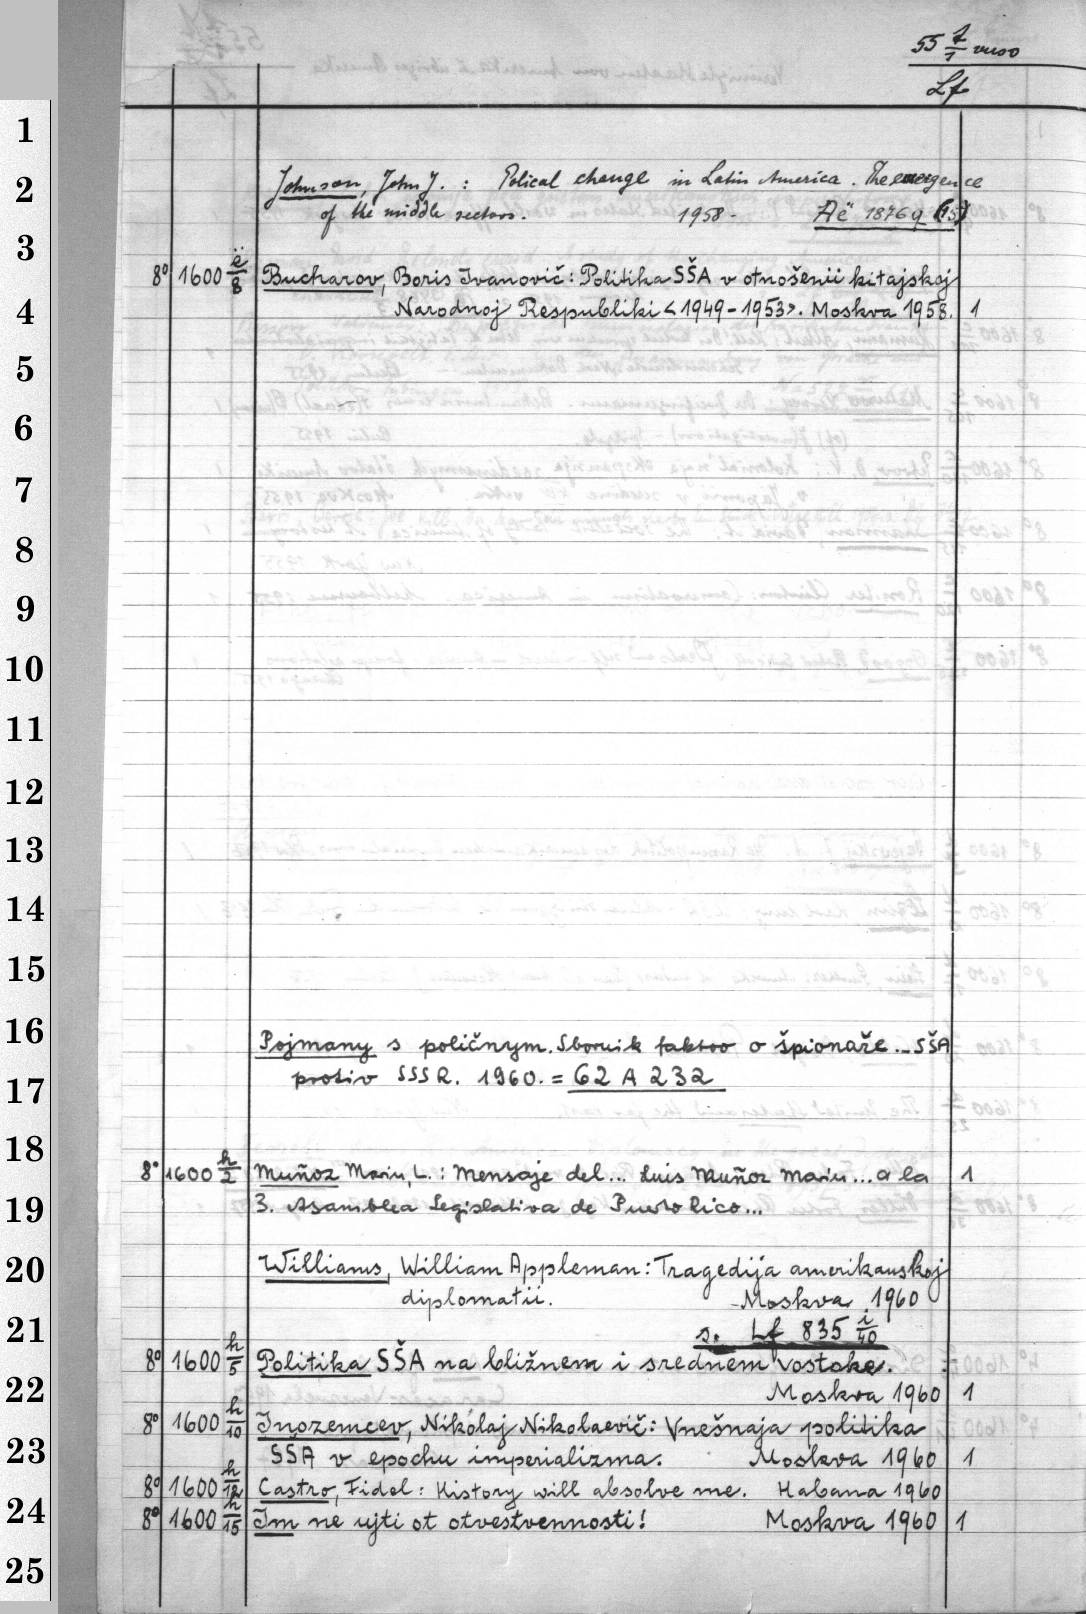 55 f/1 verso
Lf
1
2
3
4
5
6
7
8
9
10
11
12
13
14
15
16
17
18
19
20
21
22
23
24
25
Johnson, John J. : Polical change in Latin America. The emergence
of the middle sectors. 1958 - Aë 1876 q (15)
8° 1600 ë/8 Bucharov, Boris Ivanovič: Politika SŠA v otnošenii kitajskoj
Narodnoj Respubliki <1949-1953>. Moskva 1958. 1
Pojmany s poličnym. Sbornik faktov o špionaže... SŠA
protiv SSSR. 1960. = 62 A 232
8° 1600 h/2 Muñoz Marin, L.: Mensaje del... Luis Muñoz Marin... a la 1
3. Asamblea Legislativa de Puerto Rico...
Williams, William Appleman: Tragedija amerikanskoj
diplomatii. Moskva 1960
s. Lf 835 i/40
8° 1600 h/5 Politika SŠA na bližnem i srednem Vostoke.
Moskva 1960 1
8° 1600 h/10 Inozemcev, Nikolaj Nikolaevič: Vnešnaja politika
SŠA v epochu imperializma. Moskva 1960 1
8° 1600 h/12 Castro, Fidel: History will absolve me. Habana 1960
8° 1600 h/15 Im ne ujti ot otvestvennosti! Moskva 1960 1